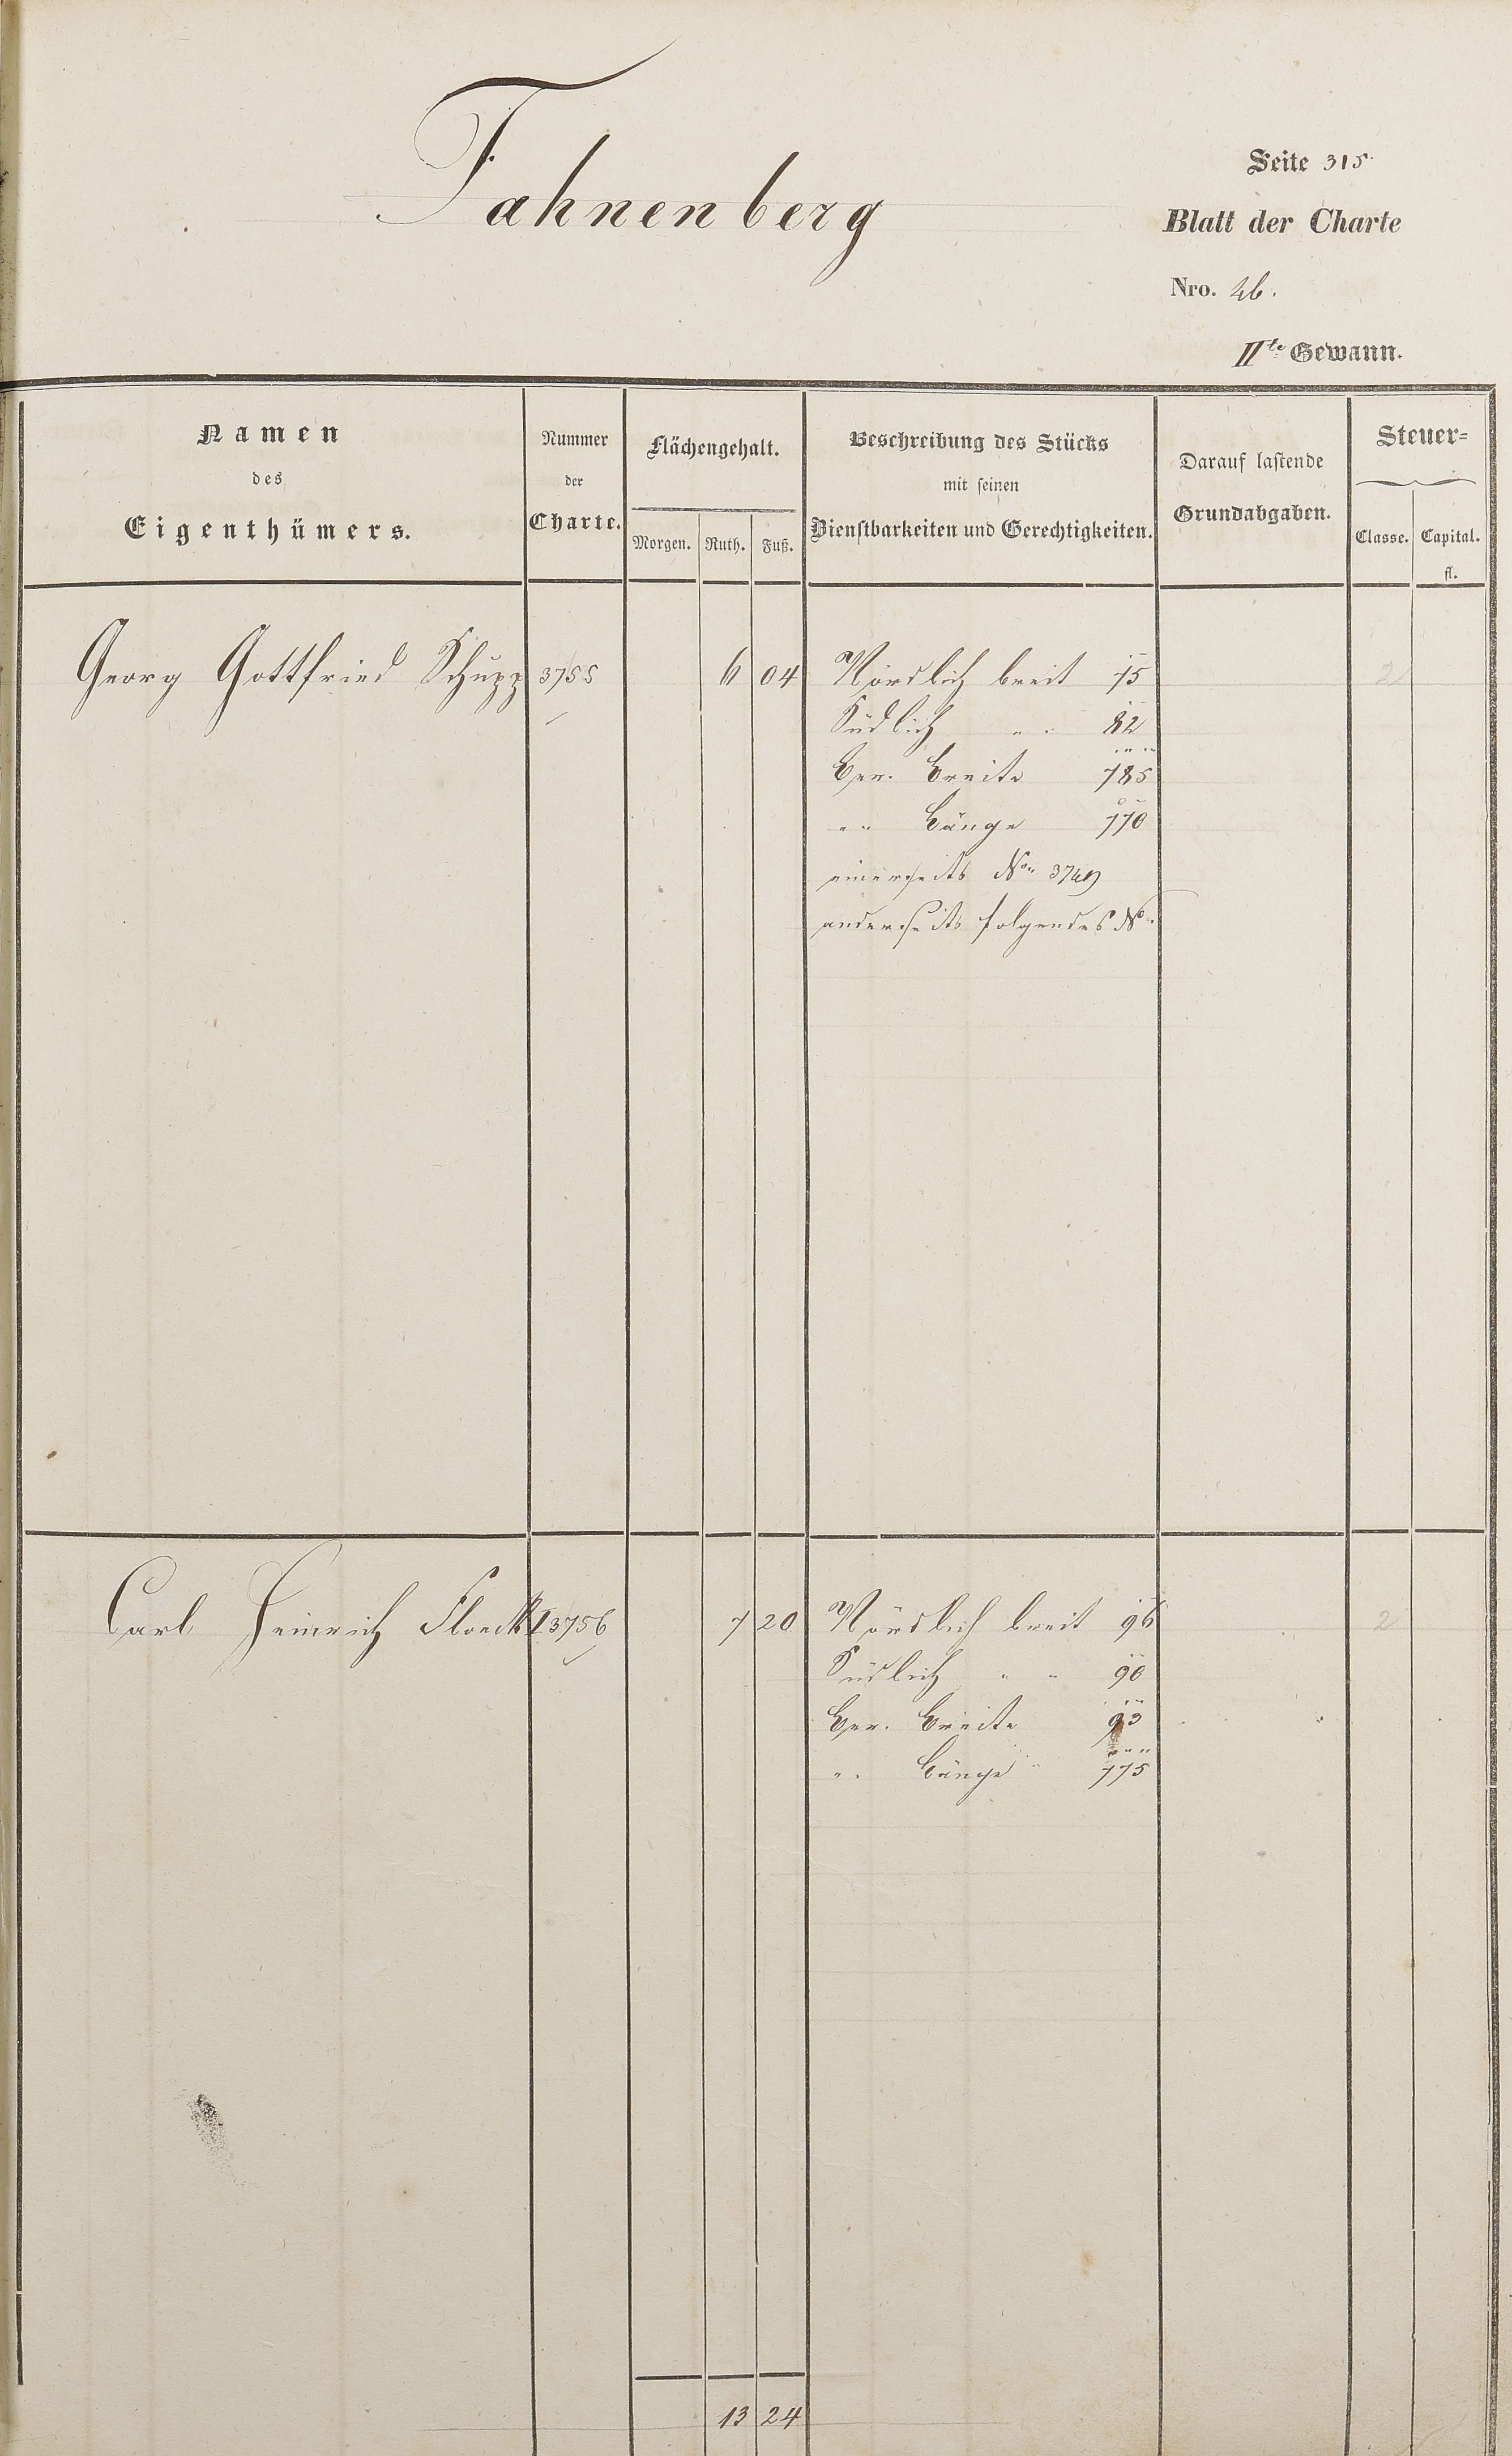 Fahnenberg
Seite 315.
Blatt der Charte
Nro. 26.
IIte Gewann.
Namen
des
Eigenthümers.
Nummer
der
Charte.
Flächengehalt.
Morgen. Ruth. Fuß.
Beschreibung des Stücks
mit seinen
Dienstbarkeiten und Gerechtigkeiten.
Darauf lastende
Grundabgaben.
Steuer=
Classe. Capital.
fl.
Georg Gottfried Schupp 3755 6 04 Nördlich breit 75 2
Südlich " " 82
Ger. Breite 785
" " Länge 770
einerseits No. 3749
anderseits folgendes No.
Carl Heinrich Floeck I 3756 7 20 Nördlich breit 96 2
Südlich " " 90
Ger. Breite 93
" " Länge 775
13 24